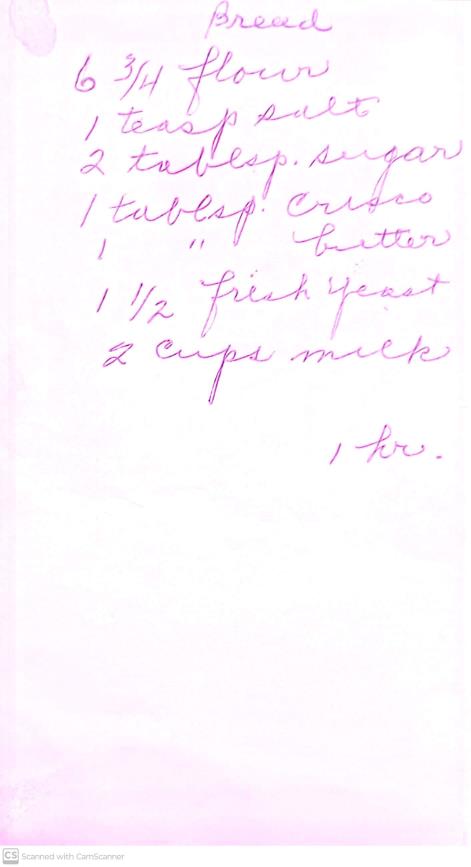 Bread
6 3/4 flour
1 teasp salt
2 tablsp. sugar
1 tablsp. crisco
1 " butter
1 1/2 fresh yeast
2 cups milk
1 hr.
CS Scanned with CamScanner